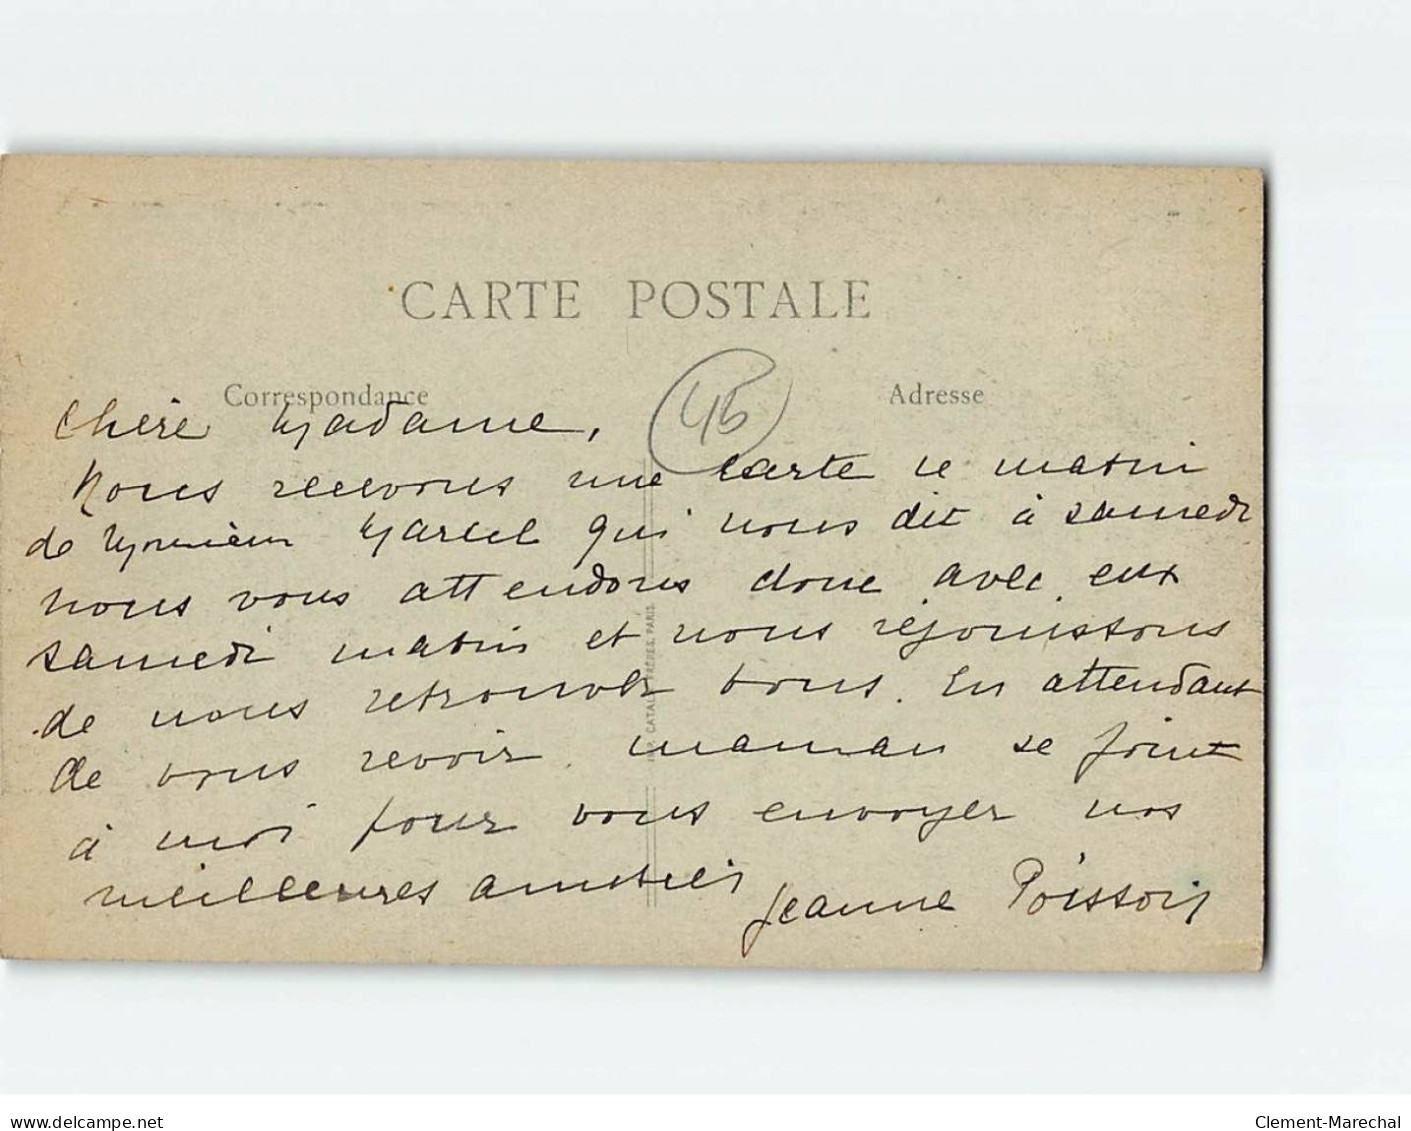 CARTE POSTALE
Correspondance
Adresse
45
Chère Madame,
Nous recevons une carte ce matin
de Monsieur Marcel qui nous dit à samedi
nous vous attendons donc avec eux
samedi matin et nous réjouissons
de nous retrouver tous. En attendant
de vous revoir maman se joint
à moi pour vous envoyer nos
meilleures amitiés
Jeanne Poisson
CATALA FRÈRES, PARIS
delcampe.net
Clement-Marechal